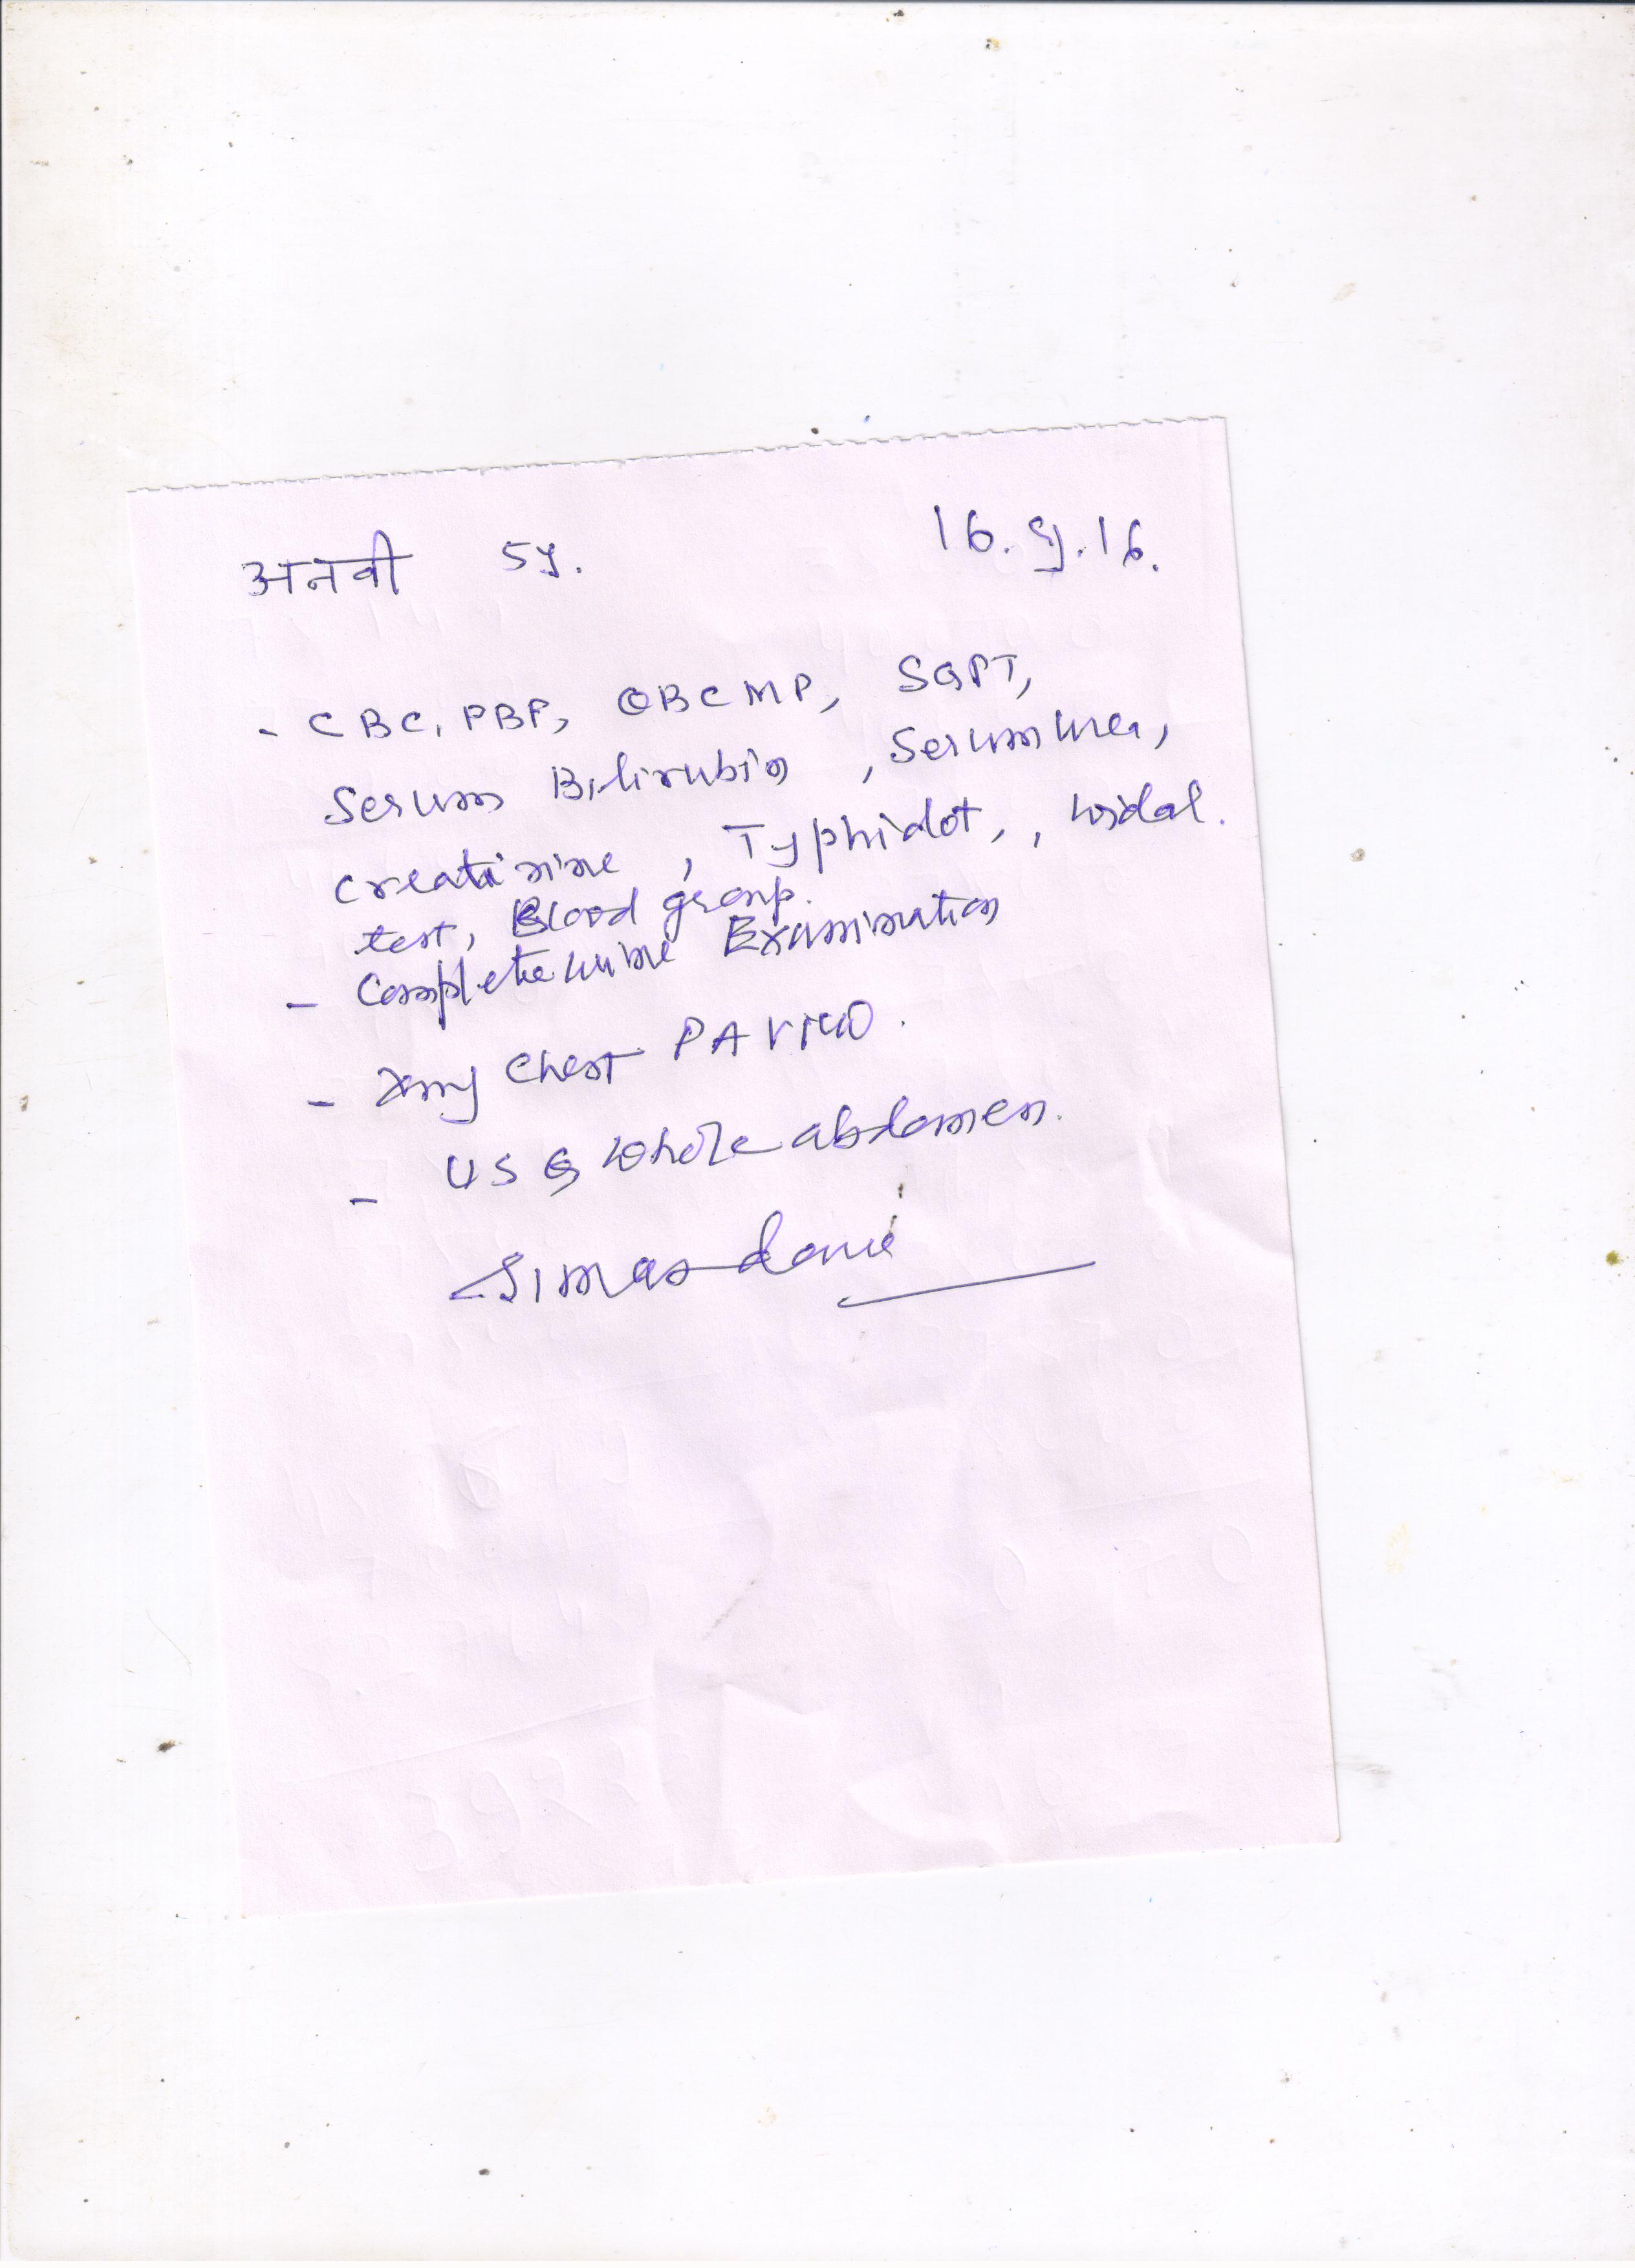 अनवी 5y. 16.9.16.
- CBC, PBF, QBCMP, SGPT,
Serum Bilirubin , Serum Urea,
creatinine , Typhidot, , widal.
test, Blood group.
- Complete urine Examination
- Xray Chest PA view.
- USG whole abdomen.